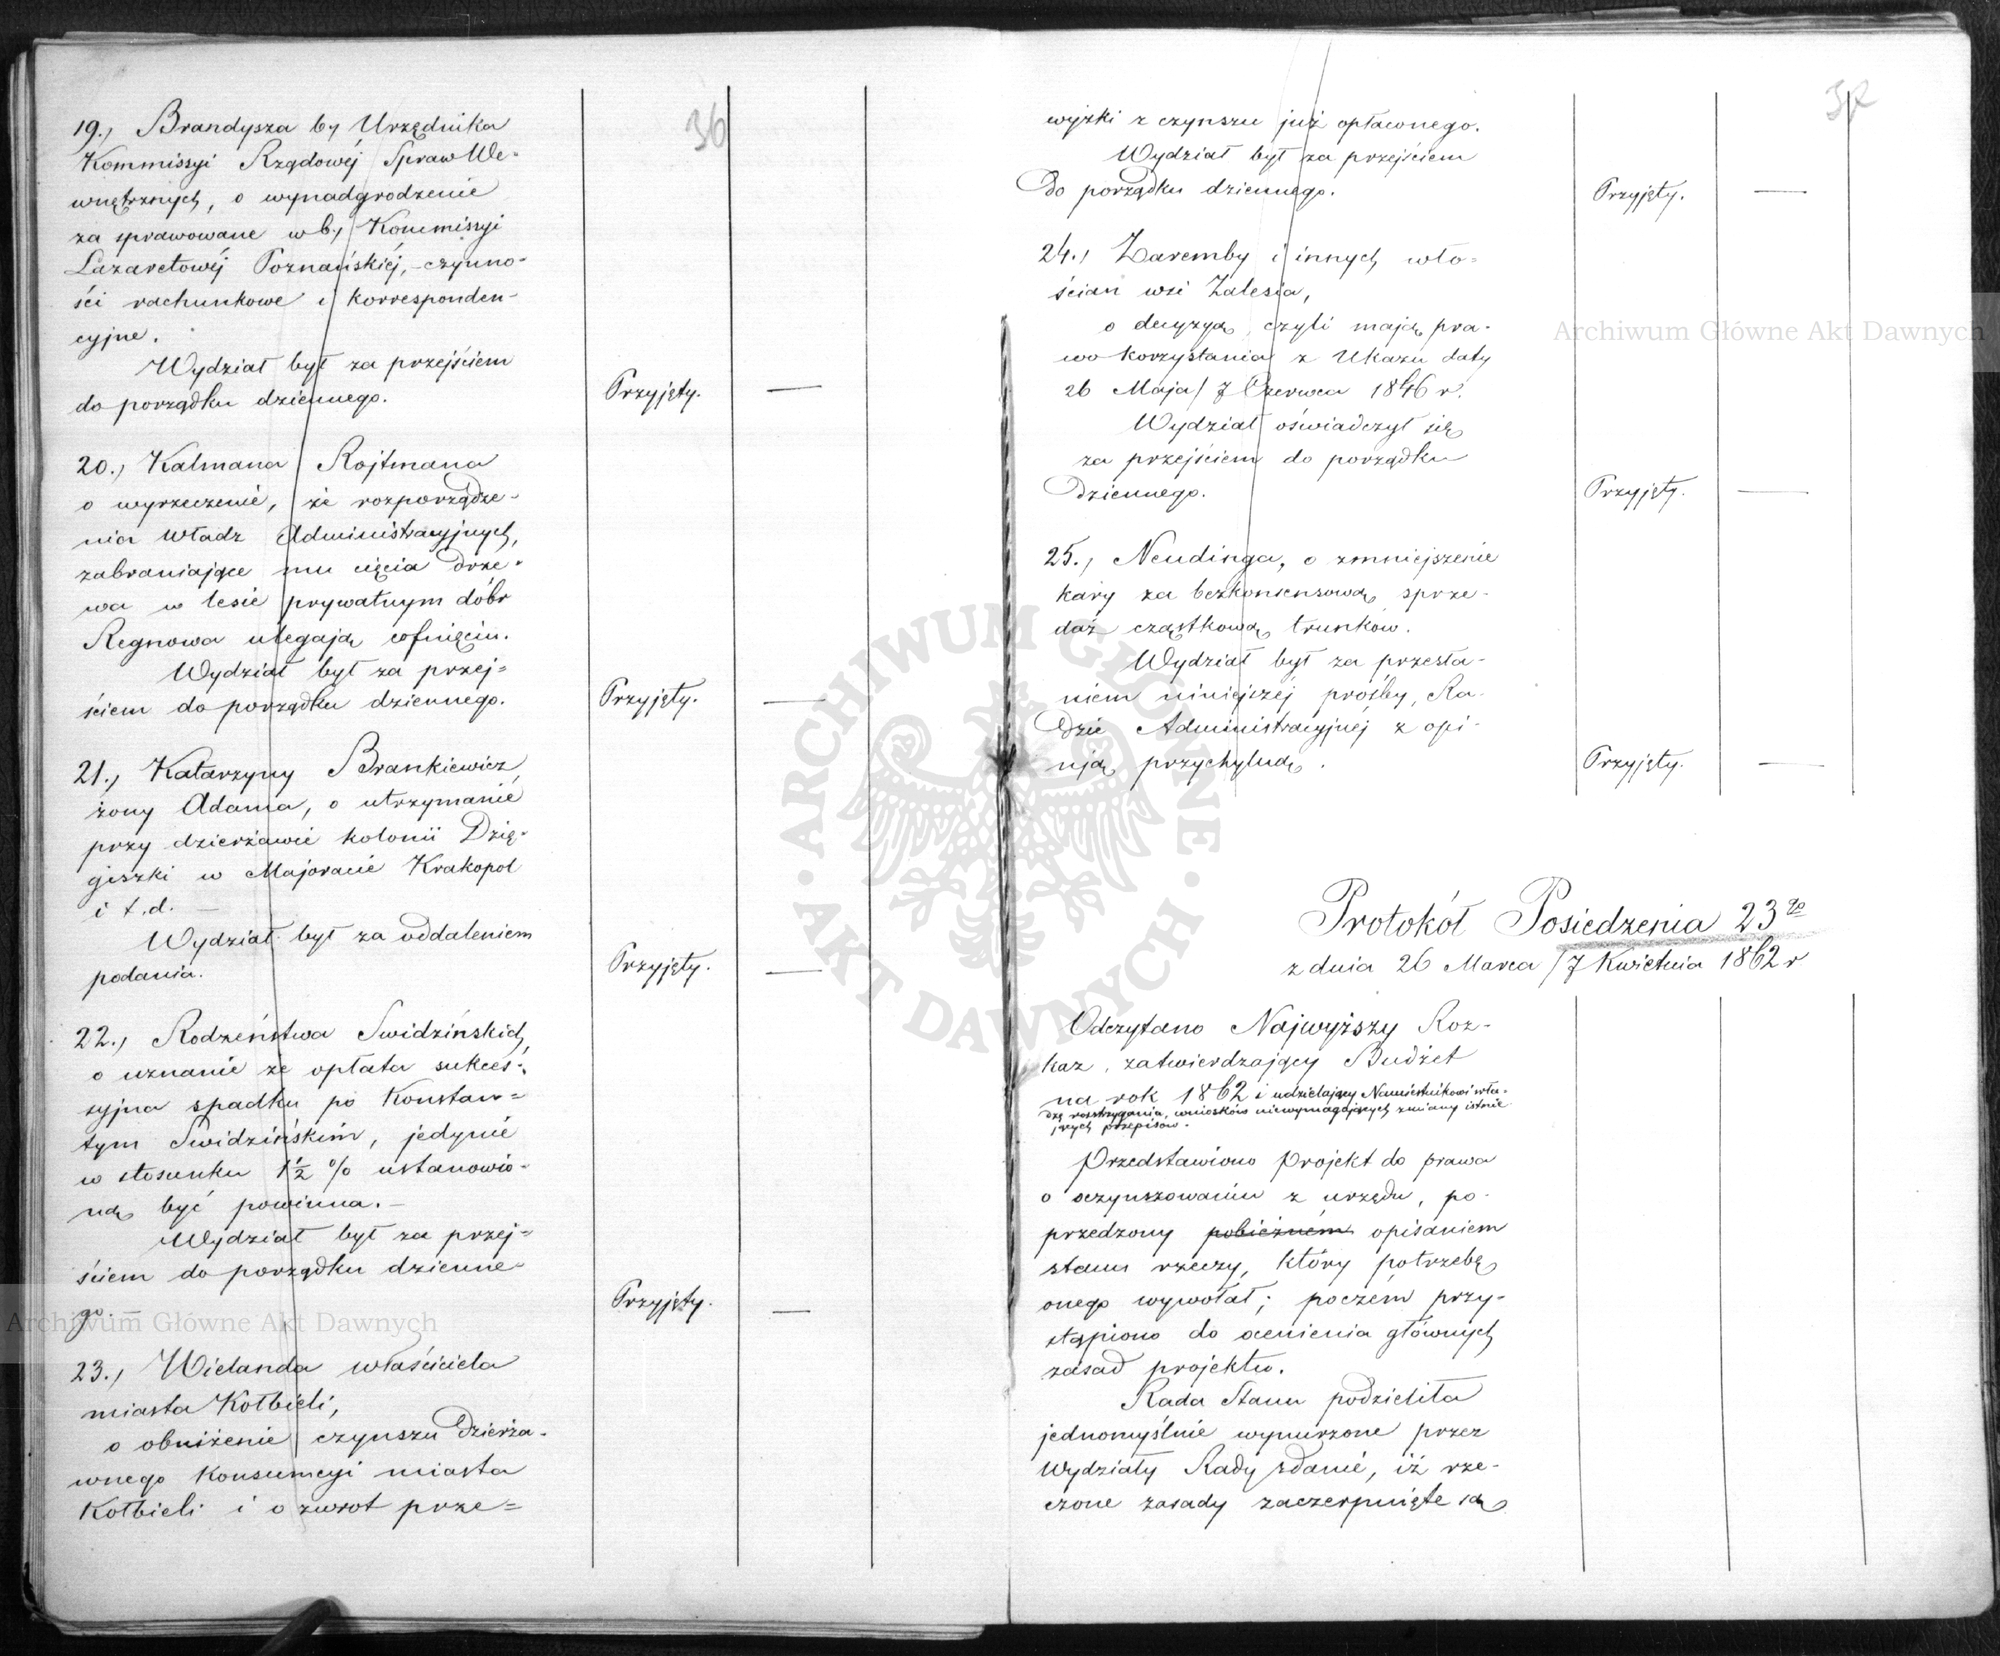 36
19., Brandysza by Urzędnika
Kommissyi Rządowéj Spraw We-
wnętrznych, o wynadgrodzenie
za sprawowane w b., Kommissyi
Lazaretowéj Poznańskiéj, - czynno-
ści rachunkowe i korresponden-
cyjne.
Wydział był za przejściem
do porządku dziennego.
Przyjęty. —
20., Kalmana Rojtmana
o wyrzeczenie, że rozporządze-
nia Władz Administracyjnych,
zabraniające mu cięcia drze-
wa w lesie prywatnym dóbr
Regnowa ulegają cofnięciu.
Wydział był za przej=
ściem do porządku dziennego.
Przyjęty. —
21., Katarzyny Brankiewicz
żony Adama, o utrzymanie
przy dzierżawie kolonii Dzię-
giszki w Majoracie Krakopol
i t.d. —
Wydział był za oddaleniem
podania.
Przyjęty. —
22., Rodzeństwa Swidzińskich,
o uznanie że opłata sukces-
syjna spadku po Konstan=
tym Swidzińskim, jedynie
w stosunku 1 1/2 % ustanowio-
ną być powinna. —
Wydział był za przej=
ściem do porządku dzienne-
go. —
Przyjęty. —
23., Wielanda właściciela
miasta Kołbieli,
o obniżenie czynszu dzierża-
wnego Konsumcyi miasta
Kołbieli i o zwrot prze=
37
wyżki z czynszu już opławnego.
Wydział był za przejściem
do porządku dziennego.
Przyjęty. —
24., Zaremby i innych wło=
ścian wsi Zalesia,
o decyzyą, czyli mają pra-
wo korzystania z Ukazu daty
26 Maja / 7 Czerwca 1846 r.
Wydział oświadczył się
za przejściem do porządku
dziennego.
Przyjęty. —
25., Neudinga, o zmniejszenie
kary za bezkonsensową sprze-
daż cząstkową trunków.
Wydział był za przesła-
niem niniejszéj prośby, Ra-
dzie Administracyjnéj z opi-
nją przychylną.
Przyjęty. —
Protokół Posiedzenia 23go
z dnia 26 Marca / 7 Kwietnia 1862 r
Odczytano Najwyższy Roz-
kaz, zatwierdzający Budżet
na rok 1862 i udzielający Namiestnikowi wła-
dzę rozstrzygania, wniosków niewymagających zmiany istnie
jących przepisów.
Przedstawiono Projekt do prawa
o oczynszowaniu z urzędu, po-
przedzony pobieżném opisaniem
stanu rzeczy, który potrzebę
onego wywołał; poczém przy-
stąpiono do ocenienia głównych
zasad projektu.
Rada Stanu podzieliła
jednomyślnie wynurzone przez
Wydziały Rady zdanie, iż rze-
czone zasady zaczerpnięte są
Archiwum Główne Akt Dawnych
Archiwum Główne Akt Dawnych
· ARCHIWUM GŁÓWNE · AKT DAWNYCH